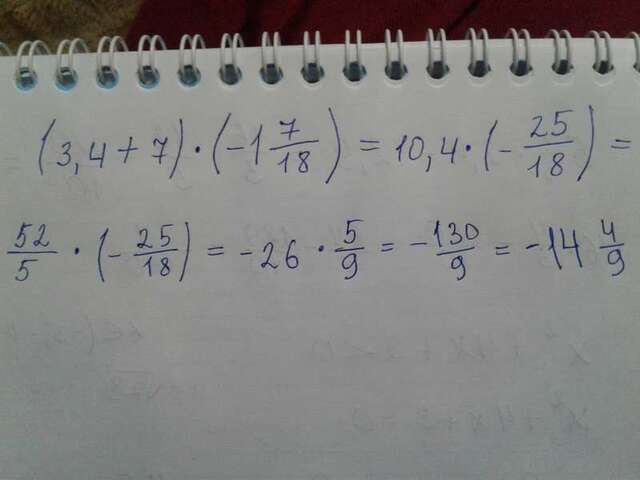 (3,4 + 7) · (-1 7/18) = 10,4 · (- 25/18) =
52/5 · (- 25/18) = -26 · 5/9 = - 130/9 = -14 4/9